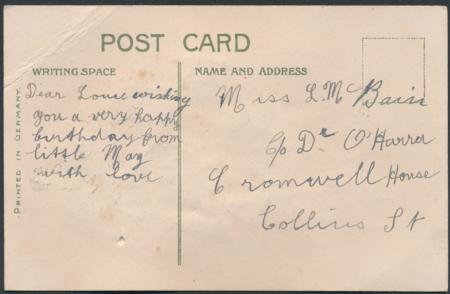 POST CARD
WRITING SPACE
NAME AND ADDRESS
Dear Louie wishing
you a very happy
birthday from
little May
with love
Miss L. McBain
c/o Dr O'Harra
Cromwell House
Collins St
PRINTED IN GERMANY.